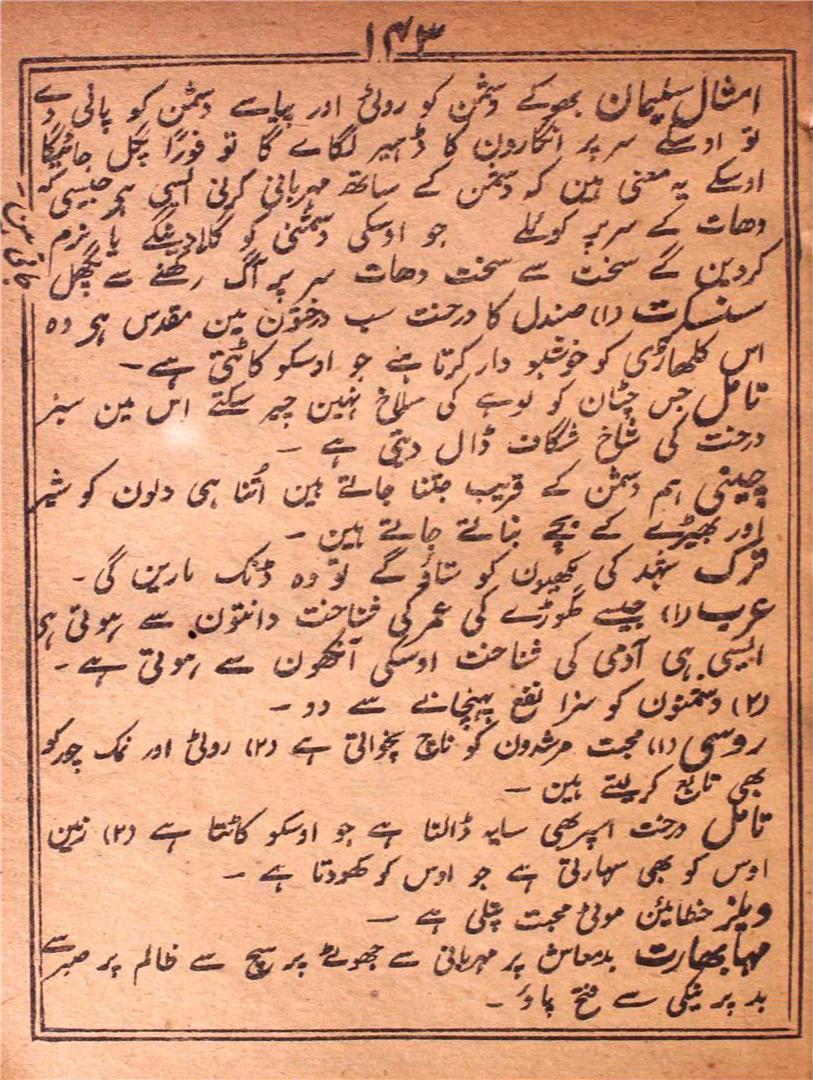 ۱۴۳
امثال سلیمان بھوکے دشمن کو روٹی اور پیاسے دشمن کو پانی دے
تو اوسکے سر پر انگارون کا ڈھیر لگاے گا تو فورًا پگل جائیگا
اوسکے یہ معنی ہین کہ دشمن کے ساتھ مہربانی کرنی ایسی ہی جیسی کہ
دھات کے سر پر کوئلے جو اوسکی دشمنی کو گلادینگے یا نرم
کردین گے سخت سے سخت دھات سر پر آگ رکھنے سے پگھل
جاتی ہین۔
سنسکرت (۱) صندل کا درخت سب درختون مین مقدس ہی وہ
اس کلھاڑی کو خوشبو دار کرتا ہے جو اوسکو کاٹتی ہے۔
تامل جس چٹان کو لوہے کی سلاخ نہین چیر سکتے اس مین سبز
درخت کی شاخ شگاف ڈال دیتی ہے۔
چینی ہم دشمن کے قریب جتنا جاتے ہین اُتنا ہی دلون کو شیر
اور بھیڑے کے بچے بناتے جاتے ہین۔
ترک شہد کی مکھیون کو ستاؤ گے تو وہ ڈنک مارین گی۔
عرب (۱) جیسے گھوڑے کی عمر کی شناخت دانتون سے ہوتی ہی
ایسی ہی آدمی کی شناخت اوسکی آنکھون سے ہوتی ہے۔
(۲) دشمنون کو سزا نفع پہنچانے سے دو۔
روسی (۱) محبت مرشدون کو ناچ نچواتی ہے (۲) روٹی اور نمک چورکو
بھی تابع کرلیتے ہین۔
تامل درخت اسپر بھی سایہ ڈالتا ہے جو اوسکو کاٹتا ہے (۲) زمین
اوس کو بھی سہارتی ہے جو اوس کو کھودتا ہے۔
ویلز خطائین موٹی محبت پتلی ہے۔
مہابھارت بدمعاش پر مہربانی سے جھوٹے پر سچ سے ظالم پر صبر سے
بد پر نیکی سے فتح پاؤ۔